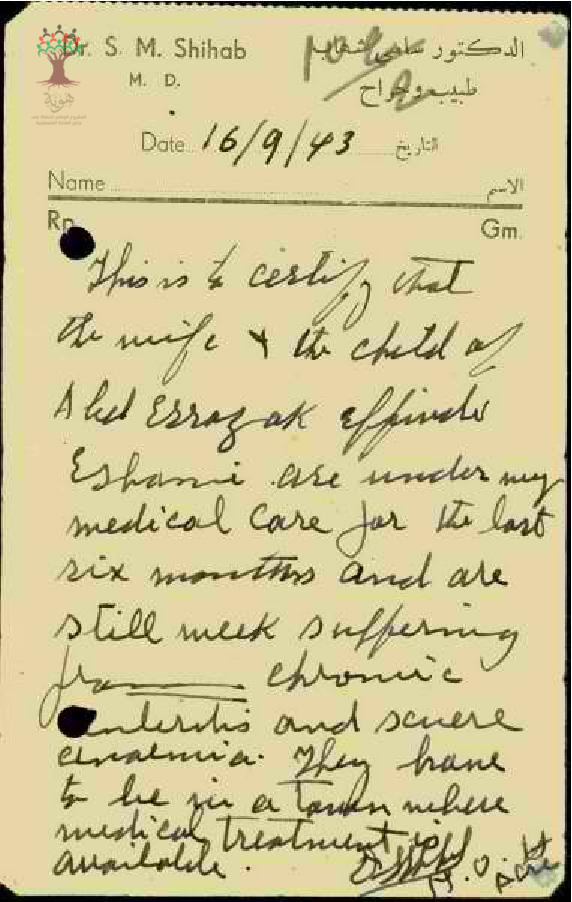 Dr. S. M. Shihab
M. D.
الدكتور سامي شهاب
طبيب وجراح
هوية
Date 16/9/43 التاريخ
Name الاسم
Rp. Gm.
This is to certify that
the wife & the child of
Abd Errazak effindi
Eshami are under my
medical care for the last
six months and are
still week suffering
from chronic
enteritis and severe
anaemia. They have
to be in a town where
medical treatment is
available.